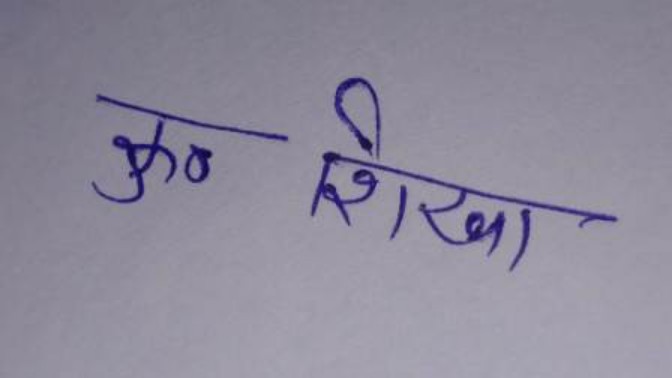 कु० शिखा